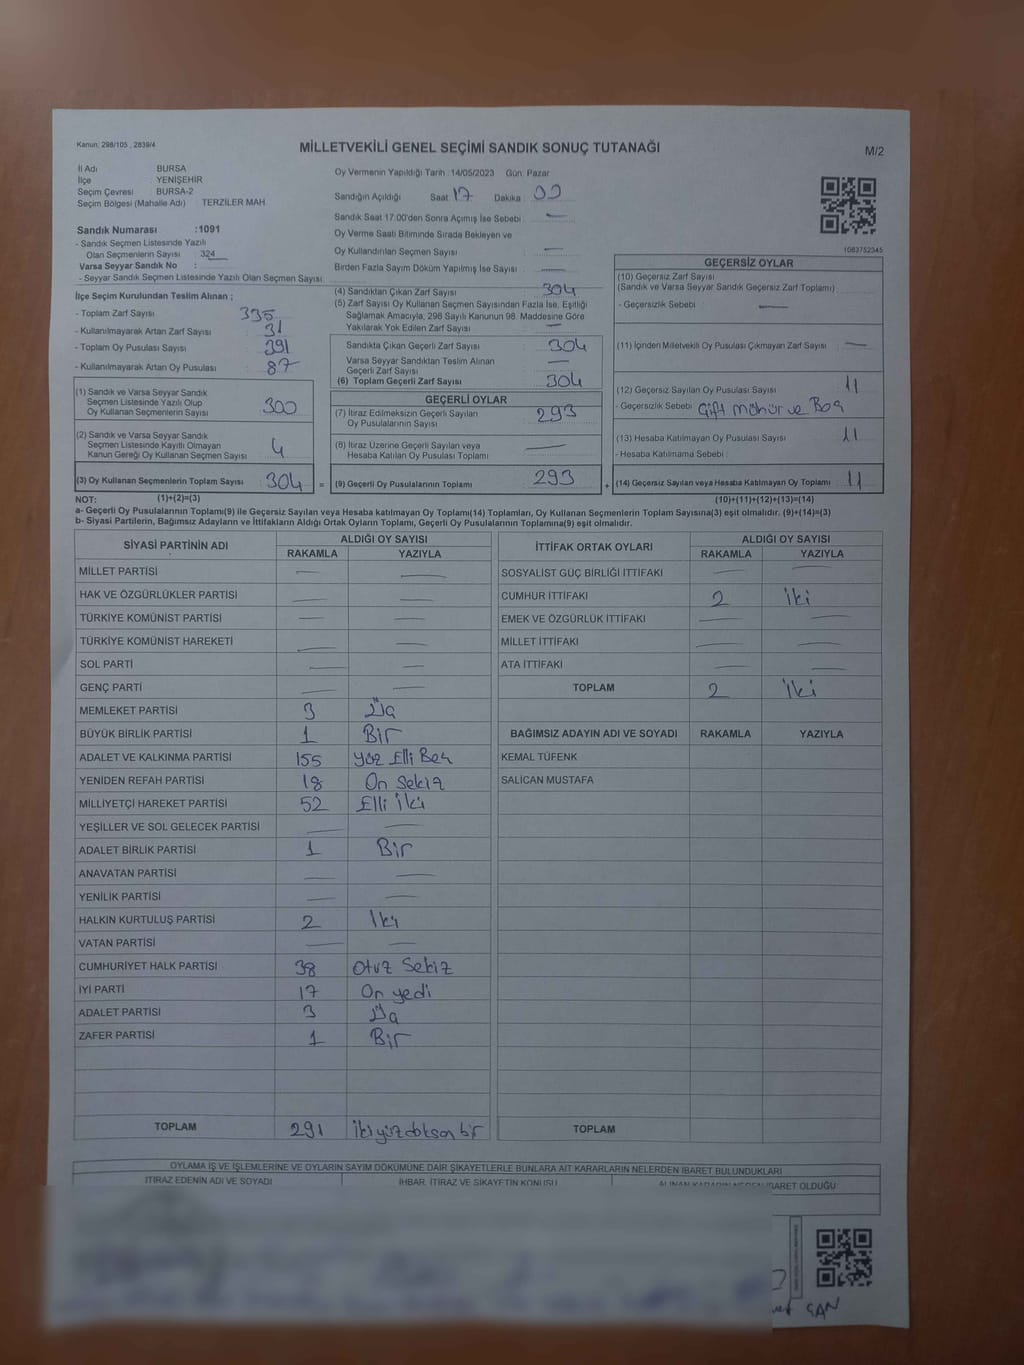 Kanun: 298/105 , 2839/4
MİLLETVEKİLİ GENEL SEÇİMİ SANDIK SONUÇ TUTANAĞI
M/2
İl Adı : BURSA
İlçe : YENİŞEHİR
Seçim Çevresi : BURSA-2
Seçim Bölgesi (Mahalle Adı) : TERZİLER MAH.
Sandık Numarası :1091
- Sandık Seçmen Listesinde Yazılı
Olan Seçmenlerin Sayısı : 324
Varsa Seyyar Sandık No :
- Seyyar Sandık Seçmen Listesinde Yazılı Olan Seçmen Sayısı :
İlçe Seçim Kurulundan Teslim Alınan ;
- Toplam Zarf Sayısı : 335
- Kullanılmayarak Artan Zarf Sayısı : 31
- Toplam Oy Pusulası Sayısı : 391
- Kullanılmayarak Artan Oy Pusulası : 87
(1) Sandık ve Varsa Seyyar Sandık
Seçmen Listesinde Yazılı Olup
Oy Kullanan Seçmenlerin Sayısı : 300
(2) Sandık ve Varsa Seyyar Sandık
Seçmen Listesinde Kayıtlı Olmayan
Kanun Gereği Oy Kullanan Seçmen Sayısı : 4
(3) Oy Kullanan Seçmenlerin Toplam Sayısı : 304 =
Oy Vermenin Yapıldığı Tarih : 14/05/2023 Gün: Pazar
Sandığın Açıldığı Saat : 17 Dakika : 00
Sandık Saat 17:00'den Sonra Açımış İse Sebebi : —
Oy Verme Saati Bitiminde Sırada Bekleyen ve
Oy Kullandırılan Seçmen Sayısı : —
Birden Fazla Sayım Döküm Yapılmış İse Sayısı : —
(4) Sandıktan Çıkan Zarf Sayısı : 304
(5) Zarf Sayısı Oy Kullanan Seçmen Sayısından Fazla İse, Eşitliği
Sağlamak Amacıyla, 298 Sayılı Kanunun 98. Maddesine Göre
Yakılarak Yok Edilen Zarf Sayısı : —
Sandıkta Çıkan Geçerli Zarf Sayısı : 304
Varsa Seyyar Sandıktan Teslim Alınan
Geçerli Zarf Sayısı : —
(6) Toplam Geçerli Zarf Sayısı : 304
GEÇERLİ OYLAR
(7) İtiraz Edilmeksizin Geçerli Sayılan
Oy Pusulalarının Sayısı : 293
(8) İtiraz Üzerine Geçerli Sayılan veya
Hesaba Katılan Oy Pusulası Toplamı : —
(9) Geçerli Oy Pusulalarının Toplamı : 293 +
1083752345
GEÇERSİZ OYLAR
(10) Geçersiz Zarf Sayısı
(Sandık ve Varsa Seyyar Sandık Geçersiz Zarf Toplamı) :
- Geçersizlik Sebebi : —
(11) İçinden Milletvekili Oy Pusulası Çıkmayan Zarf Sayısı : —
(12) Geçersiz Sayılan Oy Pusulası Sayısı : 11
- Geçersizlik Sebebi : Çift mühür ve Boş
(13) Hesaba Katılmayan Oy Pusulası Sayısı : 11
- Hesaba Katılmama Sebebi :
(14) Geçersiz Sayılan veya Hesaba Katılmayan Oy Toplamı : 11
NOT: (1)+(2)=(3) (10)+(11)+(12)+(13)=(14)
a- Geçerli Oy Pusulalarının Toplamı(9) ile Geçersiz Sayılan veya Hesaba katılmayan Oy Toplamı(14) Toplamları, Oy Kullanan Seçmenlerin Toplam Sayısına(3) eşit olmalıdır. (9)+(14)=(3)
b- Siyasi Partilerin, Bağımsız Adayların ve İttifakların Aldığı Ortak Oyların Toplamı, Geçerli Oy Pusulalarının Toplamına(9) eşit olmalıdır.
SİYASİ PARTİNİN ADI ALDIĞI OY SAYISI
RAKAMLA YAZIYLA
MİLLET PARTİSİ — —
HAK VE ÖZGÜRLÜKLER PARTİSİ — —
TÜRKİYE KOMÜNİST PARTİSİ — —
TÜRKİYE KOMÜNİST HAREKETİ — —
SOL PARTİ — —
GENÇ PARTİ — —
MEMLEKET PARTİSİ 3 Üç
BÜYÜK BİRLİK PARTİSİ 1 Bir
ADALET VE KALKINMA PARTİSİ 155 yüz Elli Beş
YENİDEN REFAH PARTİSİ 18 On Sekiz
MİLLİYETÇİ HAREKET PARTİSİ 52 Elli İki
YEŞİLLER VE SOL GELECEK PARTİSİ — —
ADALET BİRLİK PARTİSİ 1 Bir
ANAVATAN PARTİSİ — —
YENİLİK PARTİSİ — —
HALKIN KURTULUŞ PARTİSİ 2 İki
VATAN PARTİSİ — —
CUMHURİYET HALK PARTİSİ 38 Otuz Sekiz
İYİ PARTİ 17 On yedi
ADALET PARTİSİ 3 Üç
ZAFER PARTİSİ 1 Bir
TOPLAM 291 İki yüz doksan bir
İTTİFAK ORTAK OYLARI ALDIĞI OY SAYISI
RAKAMLA YAZIYLA
SOSYALİST GÜÇ BİRLİĞİ İTTİFAKI — —
CUMHUR İTTİFAKI 2 İki
EMEK VE ÖZGÜRLÜK İTTİFAKI — —
MİLLET İTTİFAKI — —
ATA İTTİFAKI — —
TOPLAM 2 İki
BAĞIMSIZ ADAYIN ADI VE SOYADI RAKAMLA YAZIYLA
KEMAL TÜFENK
SALİCAN MUSTAFA
TOPLAM
OYLAMA İŞ VE İŞLEMLERİNE VE OYLARIN SAYIM DÖKÜMÜNE DAİR ŞİKAYETLERLE BUNLARA AİT KARARLARIN NELERDEN İBARET BULUNDUKLARI
İTİRAZ EDENİN ADI VE SOYADI İHBAR, İTİRAZ VE ŞİKAYETİN KONUSU ALINAN KARARIN NEDEN İBARET OLDUĞU